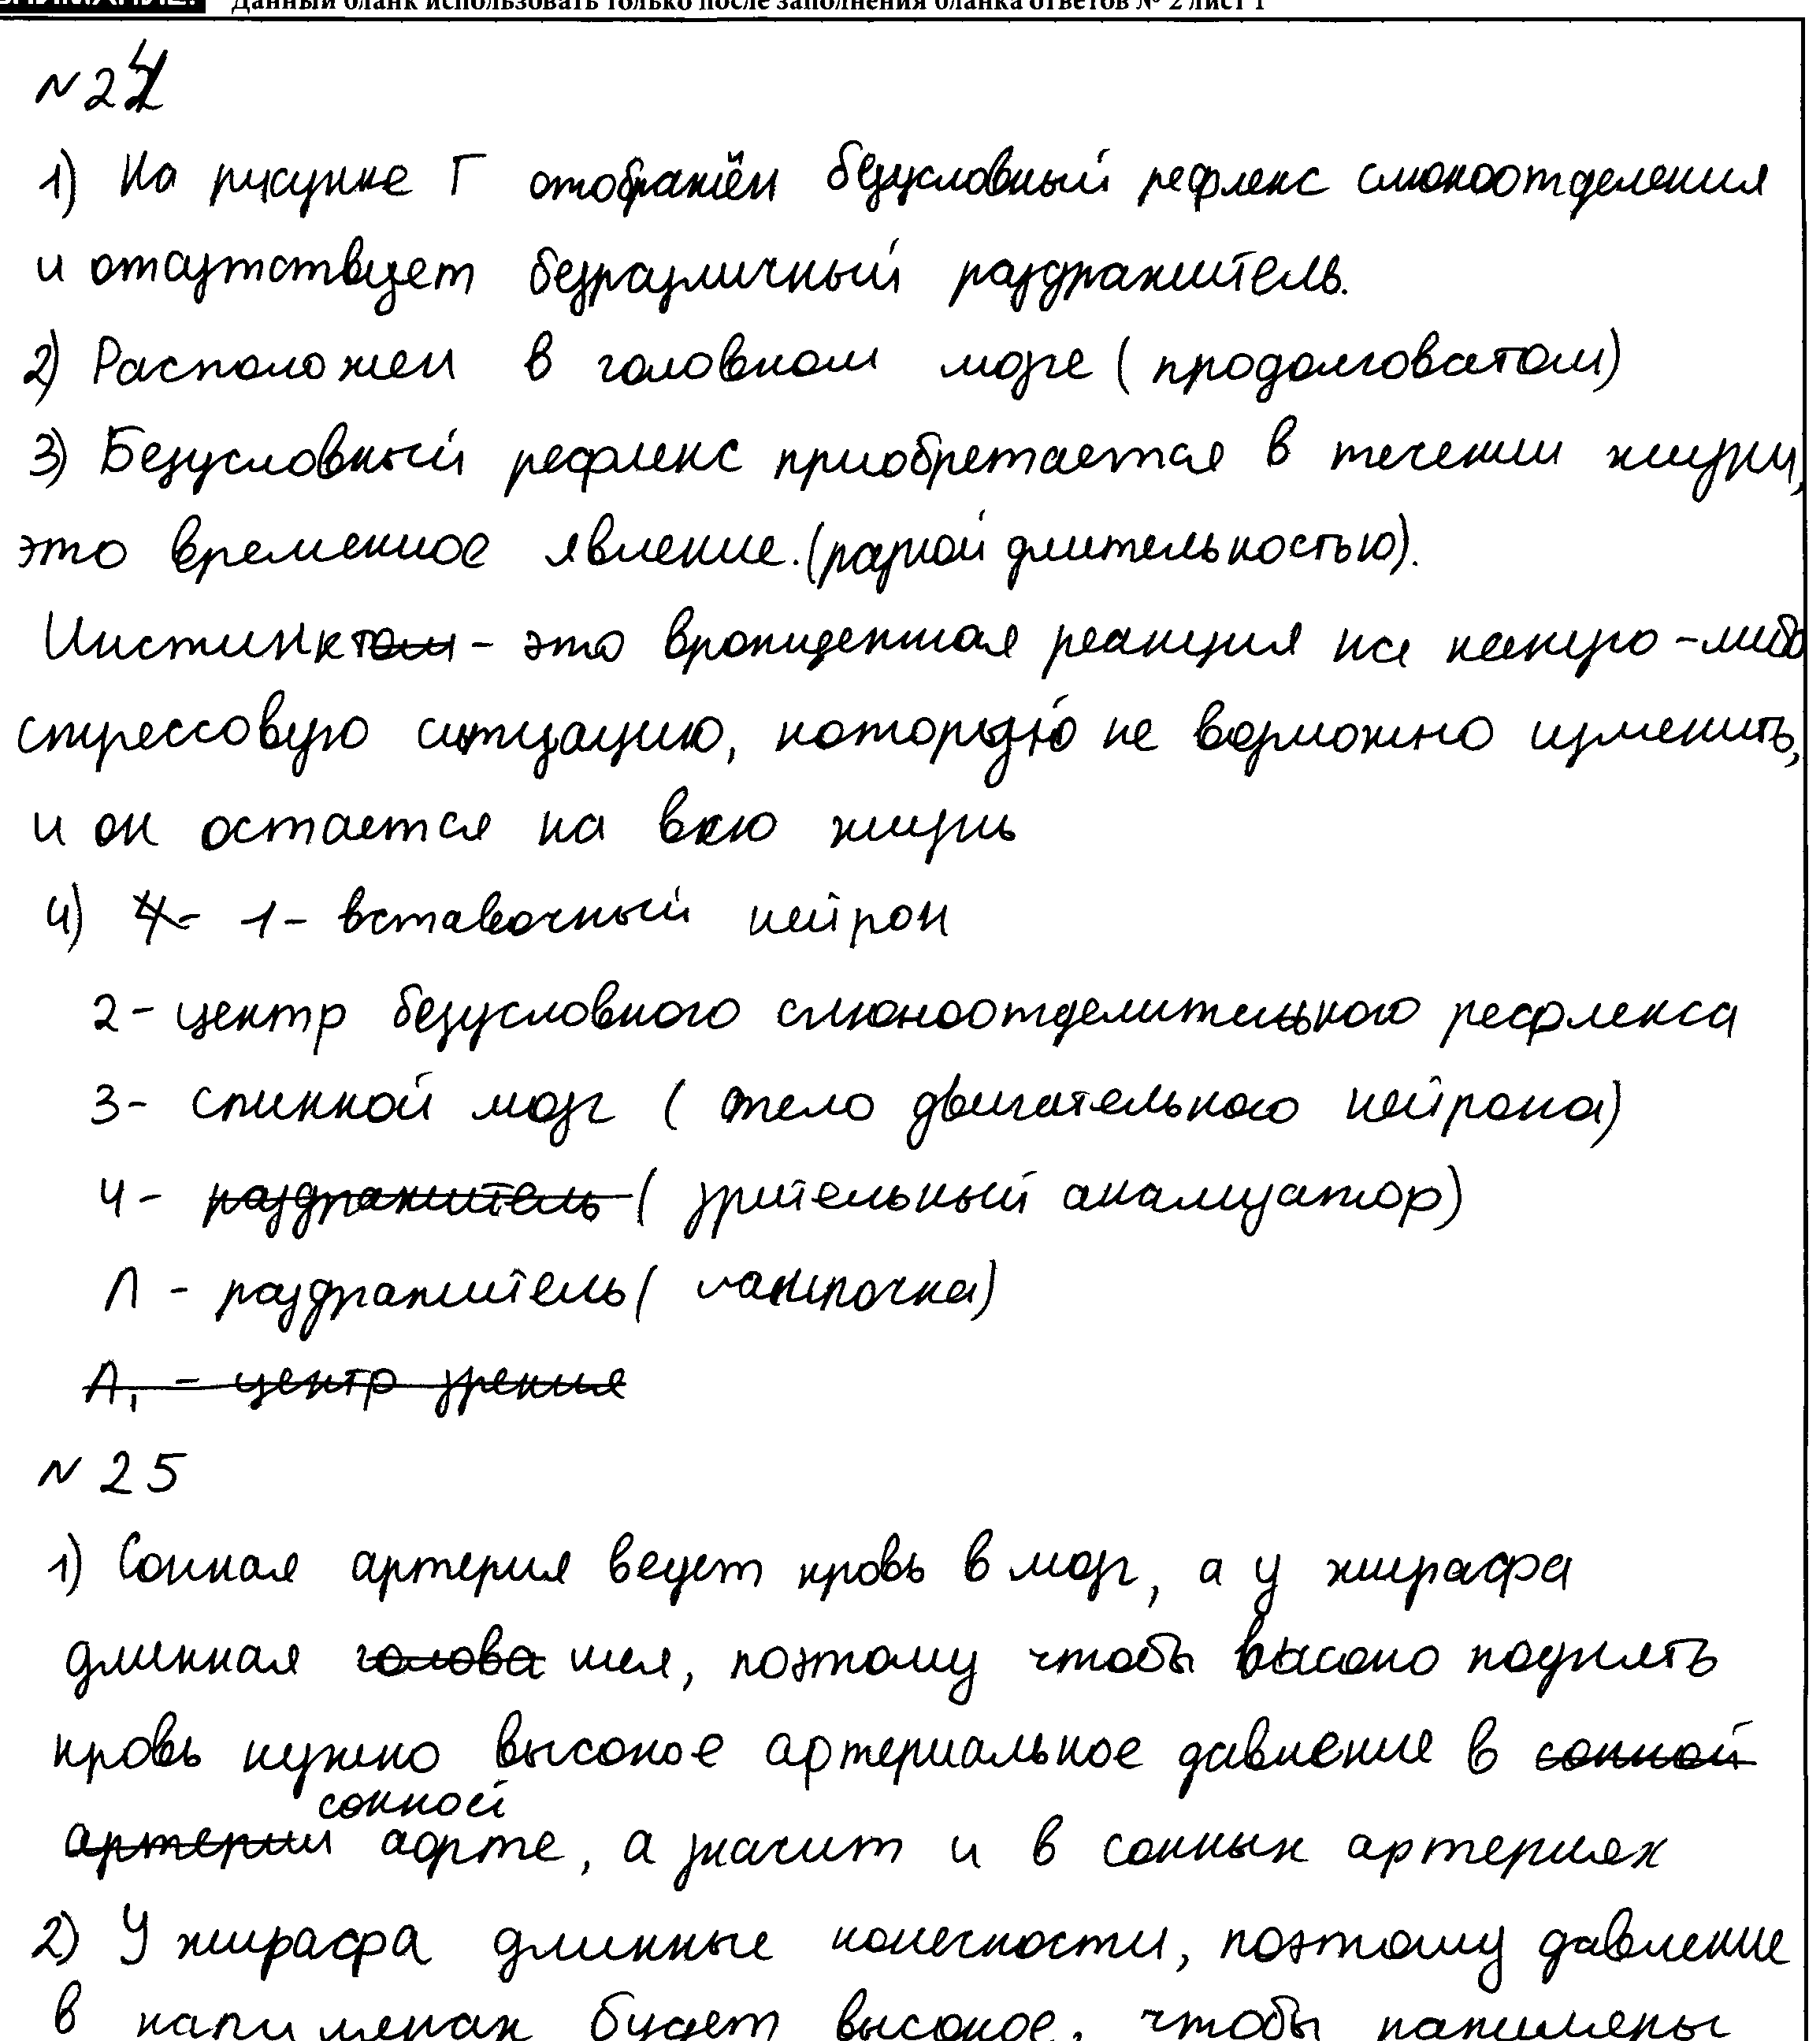 Данный бланк использовать только после заполнения бланка ответов № 2 лист 1
№24
1) На рисунке Г отображён безусловный рефлекс слюноотделения
и отсутствует безразличный раздражитель.
2) Расположен в головном мозге (продолговатом)
3) Безусловный рефлекс приобретается в течении жизни,
это временное явление. (разной длительностью).
Инстинктом - это врожденная реакция на какую-либо
стрессовую ситуацию, которую не возможно изменить,
и он остается на всю жизнь
4) 4- 1- вставочный нейрон
2- центр безусловного слюноотделительного рефлекса
3- спинной мозг (тело двигательного нейрона)
4- раздражитель (зрительный анализатор)
Л - раздражитель (лампочка)
А, - центр зрения
№25
1) Сонная артерия ведет кровь в мозг, а у жирафа
длинная голова шея, поэтому чтобы высоко поднять
кровь нужно высокое артериальное давление в сонной
сонной
артерии аорте, а значит и в сонных артериях
2) У жирафа длинные конечности, поэтому давление
в капилярах будет высокое, чтобы капиляры